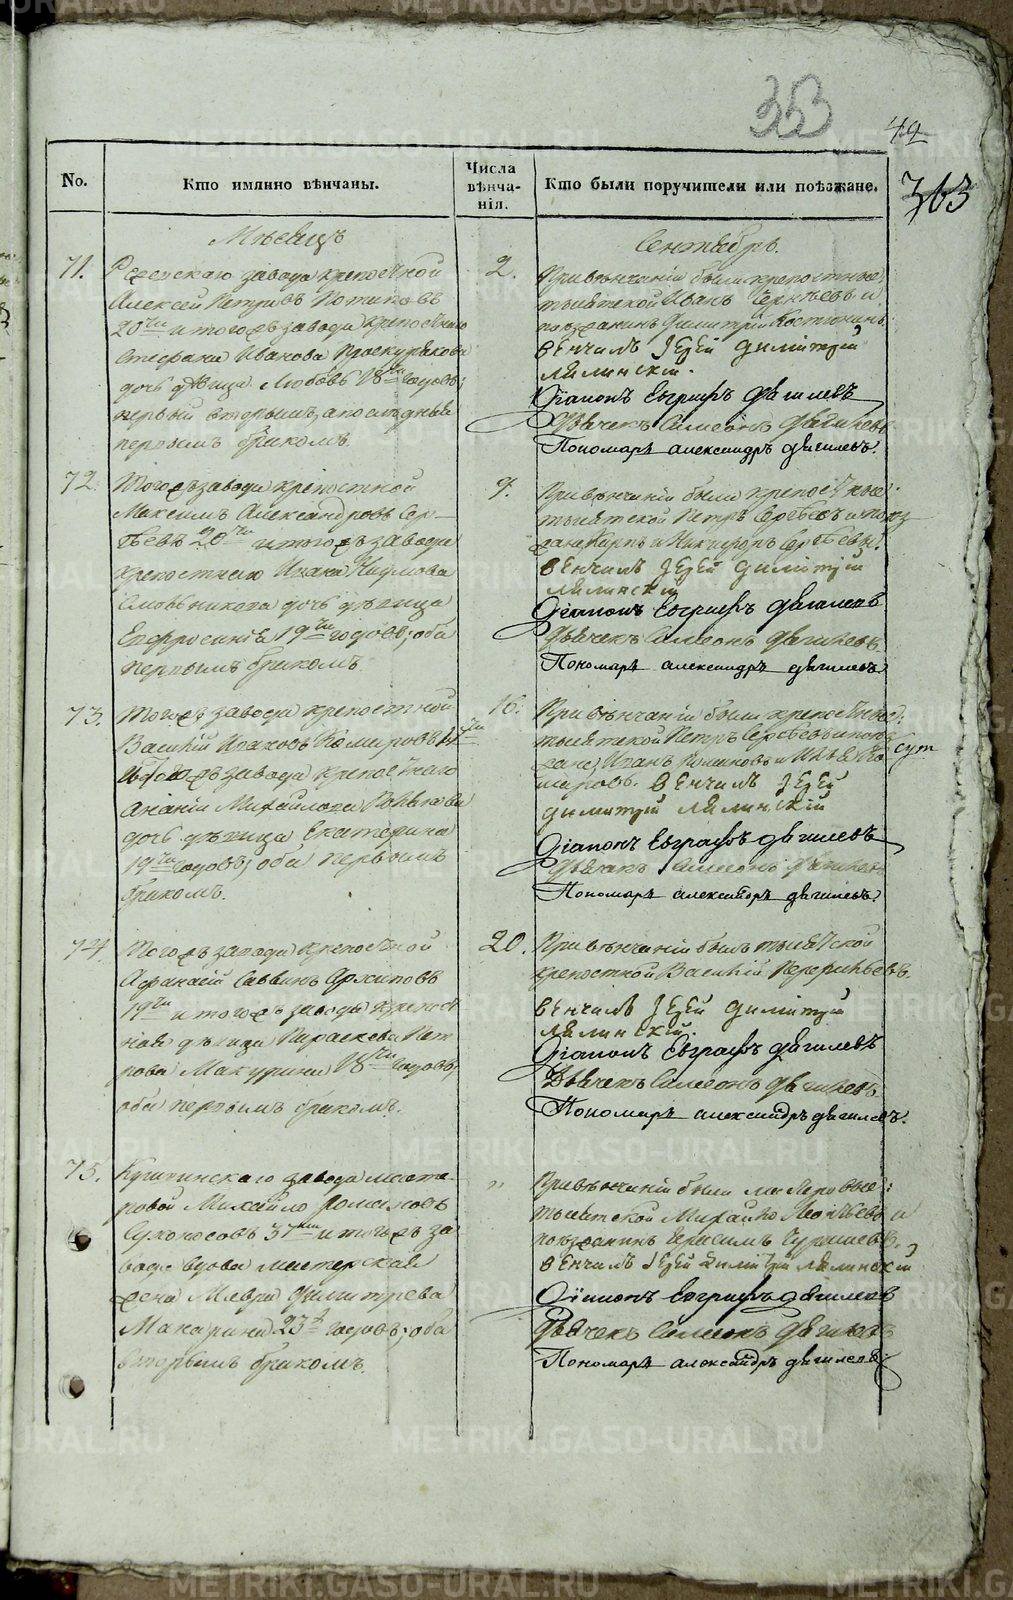 353
42
363
No.
Кто имянно вѣнчаны.
Числа
вѣнча-
нія.
Кто были поручители или поѣзжане.
Мѣсяцъ
Сентябрь.
71.
завода крепостной
Алексей Петровъ Потаповъ
20ти и тогожъ завода крепостнаго
Стефана Иванова Проскурякова
дочь дѣвица Любовь 18ти годовъ;
первый вторымъ, а последняя
первымъ бракомъ.
2.
При вѣнчаніи были крепостные:
тысятской Иванъ и
поѣзжанинъ Димитрій Костюнинъ
вѣнчалъ Іерей Димитрій
Лялинскій.
Діаконъ Евграфъ Двгилевъ
Дьячекъ Симеонъ Двгилевъ
Пономарь Александръ Двгилевъ.
72.
Тогожъ завода крепостной
Максимъ Александровъ Сер-
гѣевъ 20ти и тогожъ завода
крепостнаго Ивана Наумова
дочь дѣвица
Евфросинія 19ти годовъ; оба
первымъ бракомъ.
9.
При вѣнчаніи были крепостные:
тысятской Петръ Сергѣевъ и поѣз
жане Карпъ и Никифоръ Сергѣевы.
вѣнчалъ Іерей Димитрій
Лялинскій
Діаконъ Евграфъ Двгилевъ
Дьячекъ Симеонъ Двгилевъ
Пономарь Александръ Двгилевъ.
73.
Тогожъ завода крепостной
Василій Исаковъ Комаровъ
и тогожъ завода крепостнаго
Ананіи Михайлова
дочь дѣвица Екатерина
19ти годовъ; оба первымъ
бракомъ.
16.
При вѣнчаніи были крепостные:
тысятской Петръ Сергѣевъ и поѣз
жане, Иванъ и Илья Ко
маровъ. вѣнчалъ Іерей
Димитрій Лялинскій
Діаконъ Евграфъ Двгилевъ
Дьячекъ Симеонъ Двгилевъ
Пономарь Александръ Двгилевъ.
74.
Тогожъ завода крепостной
Афанасій Саввинъ Архиповъ
19ти и тогожъ завода крепост
ная дѣвица Параскева Пет
рова Макурина 18ти годовъ;
оба первымъ бракомъ.
20.
При вѣнчаніи былъ тысятской
крепостной Василій
вѣнчалъ Іерей Димитрій
Лялинскій.
Діаконъ Евграфъ Двгилевъ
Дьячекъ Симеонъ Двгилевъ
Пономарь Александръ Двгилевъ.
75.
Кушвинскаго завода масте-
ровой Михайло Романовъ
Сухоносовъ 37ми и тогожъ за
вода вдова мастерская
жена Мавра Димитрева
Макарина 23х годовъ; оба
вторымъ бракомъ.
"
При вѣнчаніи были мастеровые:
тысятской Михайло Леонтьевъ и
поѣзжанинъ Герасимъ
вѣнчалъ Іерей Димитрій Лялинскій
Діаконъ Евграфъ Двгилевъ
Дьячекъ Симеонъ Двгилевъ
Пономарь Александръ Двгилевъ.
METRIKI.GASO-URAL.RU